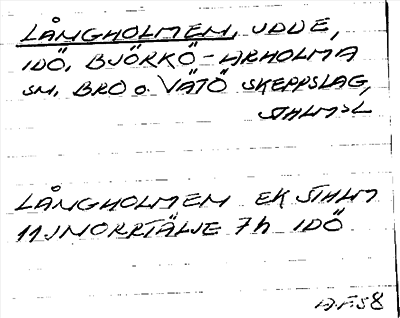 LÅNGHOLMEN, UDDE,
IDÖ, BJÖRKÖ-ARHOLMA
SN, BRO o. VÄTÖ SKEPPSLAG,
STHLMSL
LÅNGHOLMEN EK STHLM
11J NORRTÄLJE 7h IDÖ
A.F.58